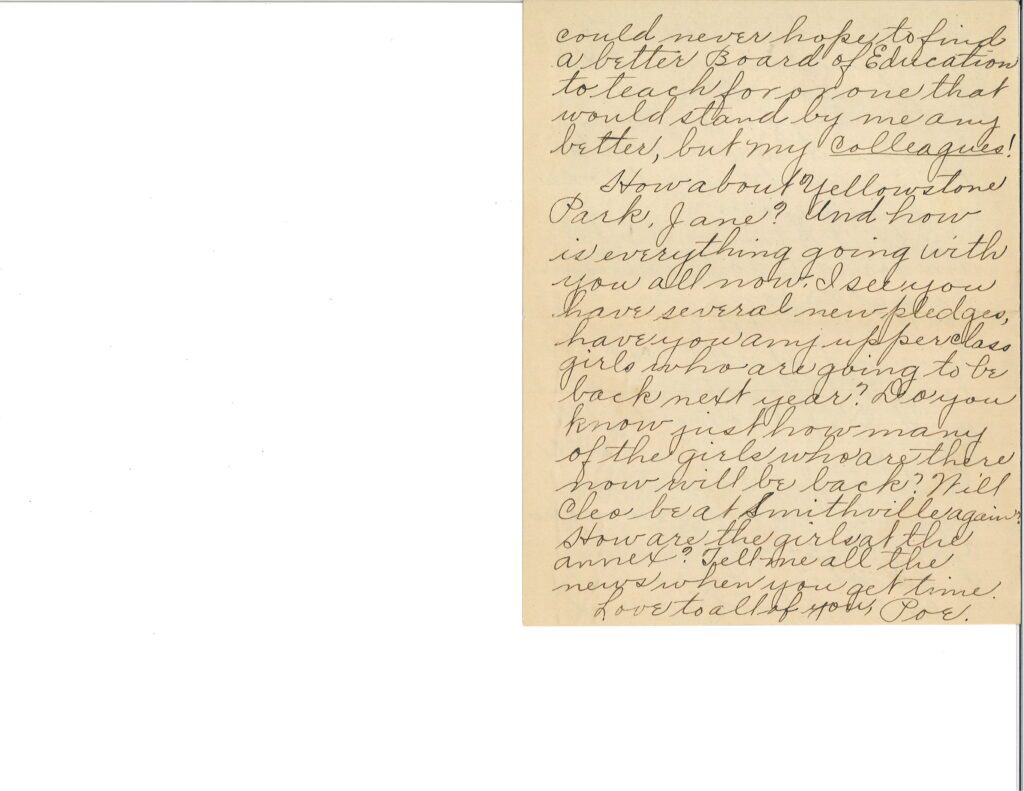 could never hope to find
a better Board of Education
to teach for or one that
would stand by me any
better, but my colleagues!
How about Yellowstone
Park, Jane? And how
is everything going with
you all now. I see you
have several new pledges,
have you any upperclass
girls who are going to be
back next year? Do you
know just how many
of the girls who are there
now will be back? Will
Cleo be at Smithville again?
How are the girls at the
annex? Tell me all the
news when you get time.
Love to all of you, Poe.